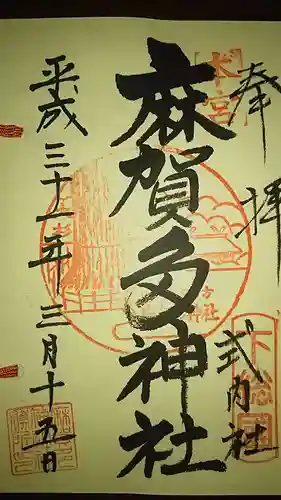 奉拝
本宮
下総国
式内社
麻賀多神社
平成三十一年三月十五日